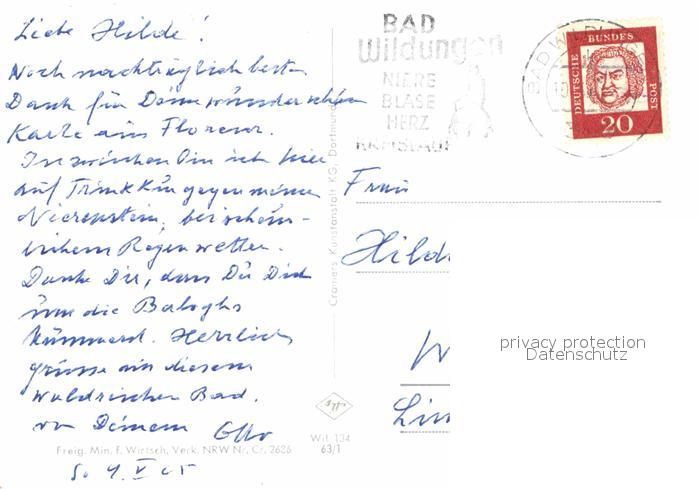 Liebe Hilde!
Noch nachträglich besten
Dank für Deine wunderschöne
Karte aus Florenz.
Inzwischen bin ich hier
auf Trinkkur gegen meine
Nierenstein, bei schein-
Regenwetter.
Danke Dir, dass Du Dich
um die Baloghs
kümmerst. Herzlich
grüsse aus diesem
Bad.
von Deinem Otto
So 9. V 65
Freig. Min. f. Wirtsch. Verk. NRW Nr. Cr. 2626
Wil 134
63/1
Cramers Kunstanstalt KG, Dortmund
BAD
Wildungen
NIERE
BLASE
HERZ
KREISLAUF
BAD WILDUNGEN
DEUTSCHE BUNDESPOST
20
Frau
Hild
W
Lin
privacy protection
Datenschutz